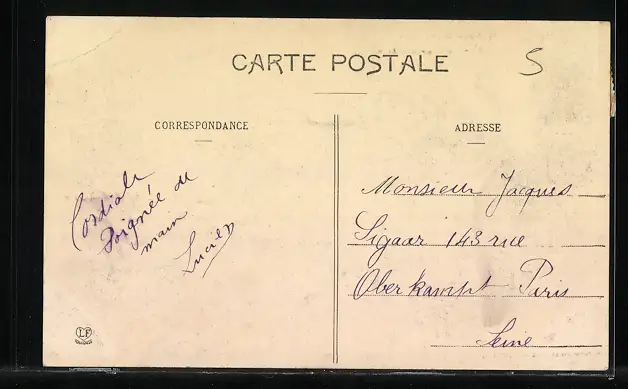 CARTE POSTALE
S
CORRESPONDANCE
Cordiale
Poignée de
main
Lucien
ADRESSE
Monsieur Jacques
Sigaar 143 rue
Oberkampt Paris
Seine
LF